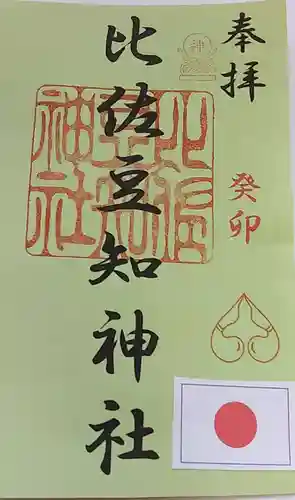 奉拝
癸卯
比佐豆知神社
神
比佐豆知神社